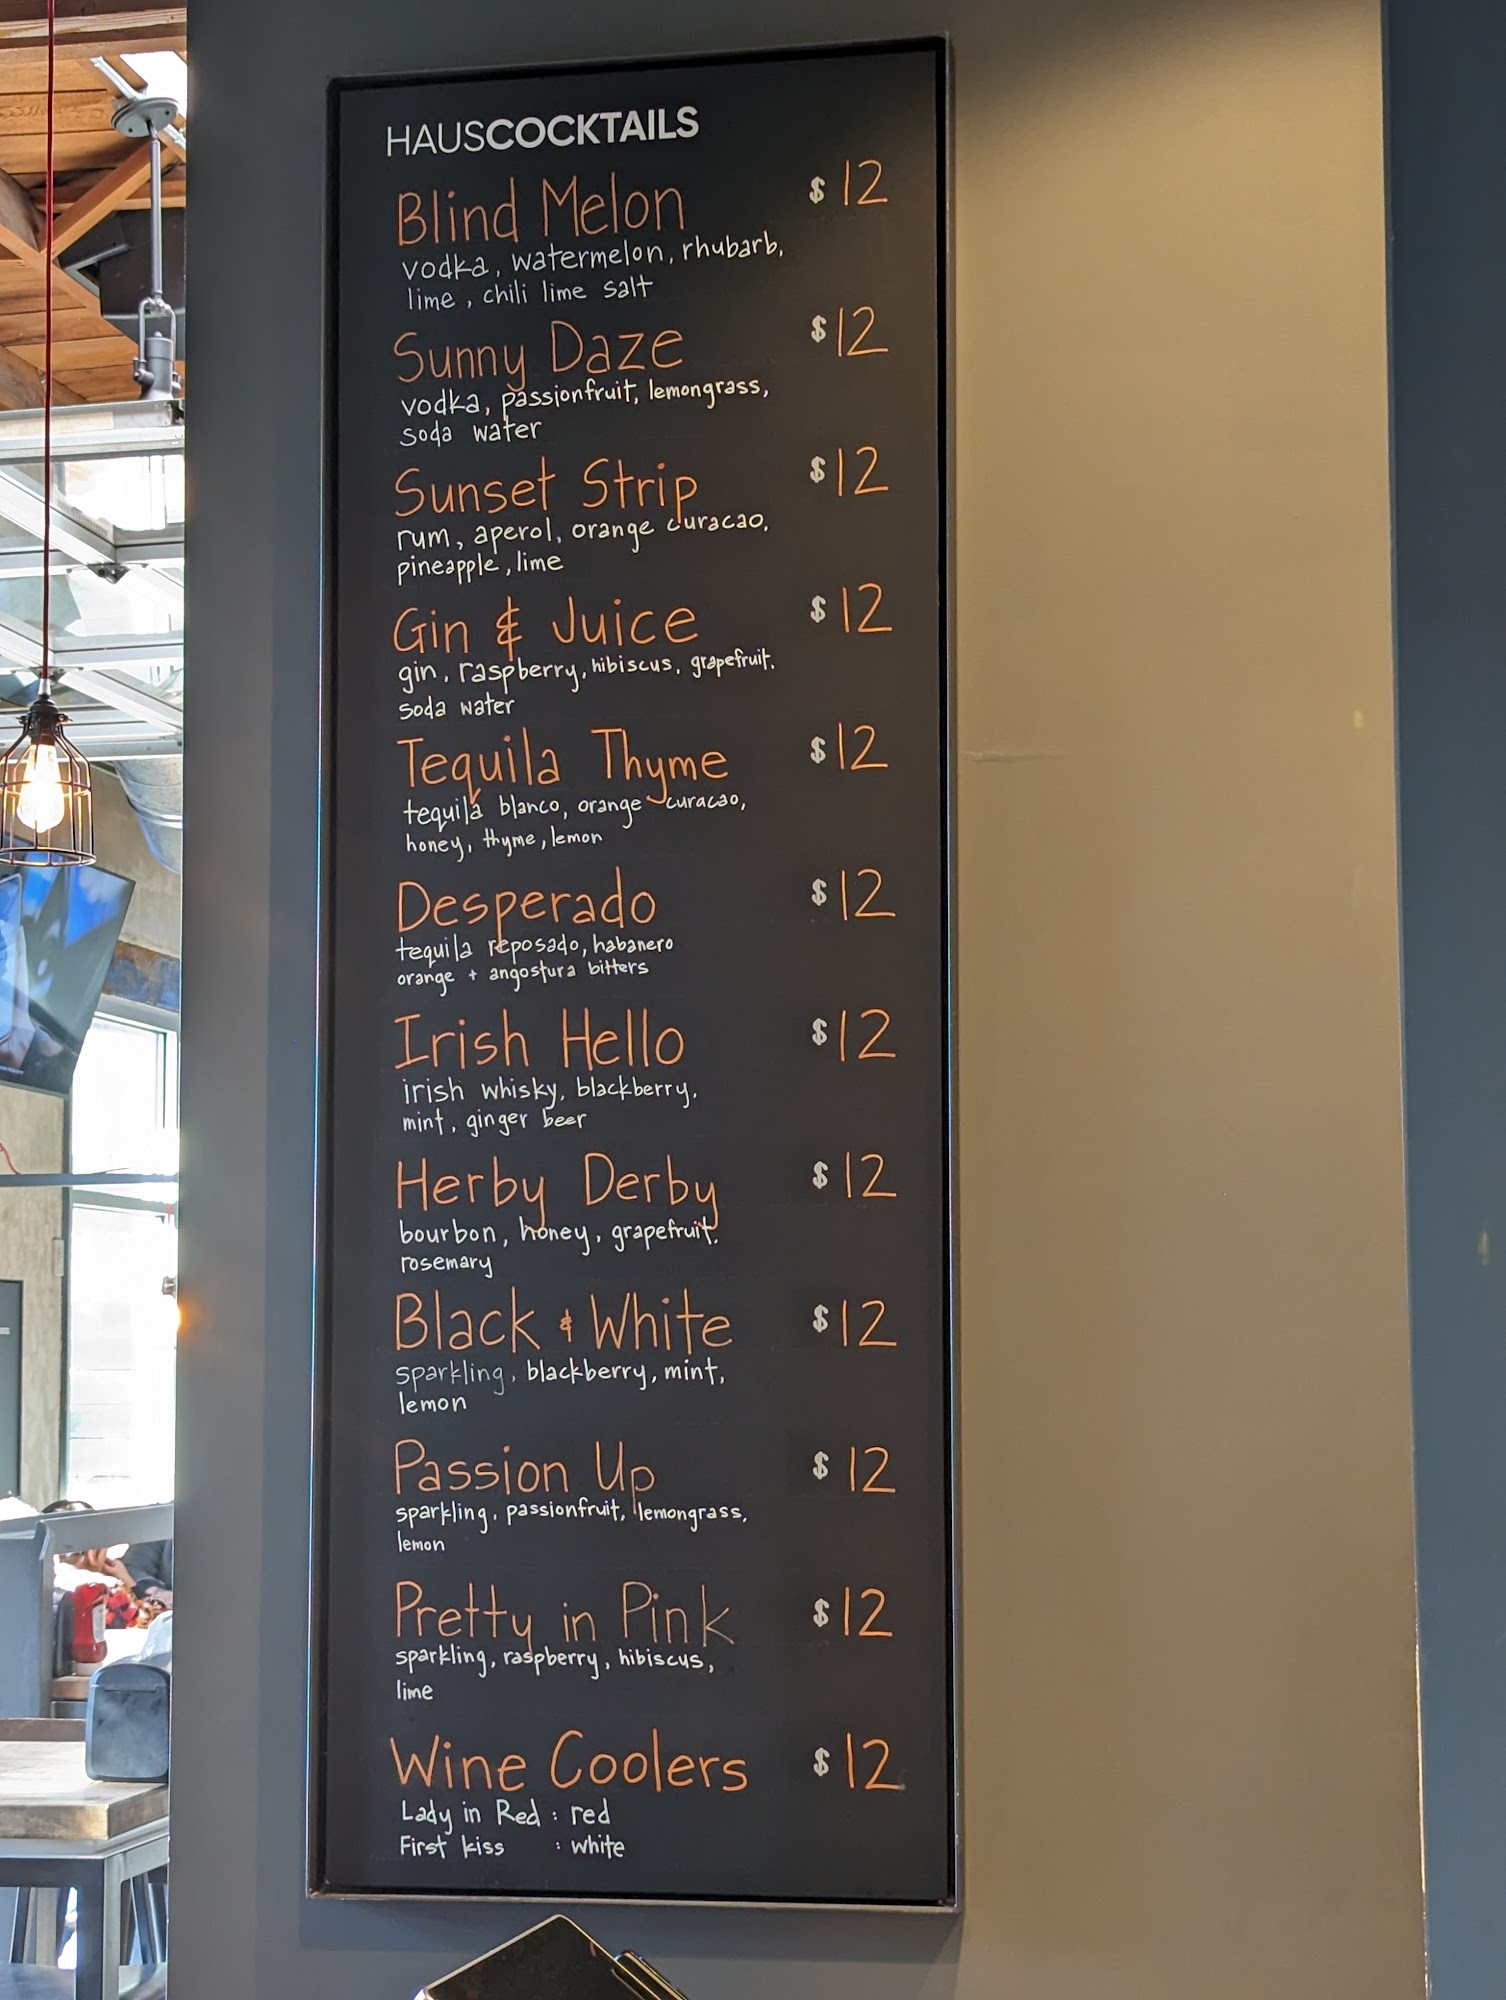 HAUSCOCKTAILS
Blind Melon $12
vodka, watermelon, rhubarb,
lime, chili lime salt
Sunny Daze $12
vodka, passionfruit, lemongrass,
soda water
Sunset Strip $12
rum, aperol, orange curacao,
pineapple, lime
Gin & Juice $12
gin, raspberry, hibiscus, grapefruit,
soda water
Tequila Thyme $12
tequila blanco, orange curacao,
honey, thyme, lemon
Desperado $12
tequila reposado, habanero
orange + angostura bitters
Irish Hello $12
irish whisky, blackberry,
mint, ginger beer
Herby Derby $12
bourbon, honey, grapefruit,
rosemary
Black & White $12
sparkling, blackberry, mint,
lemon
Passion Up $12
sparkling, passionfruit, lemongrass,
lemon
Pretty in Pink $12
sparkling, raspberry, hibiscus,
lime
Wine Coolers $12
Lady in Red : red
First kiss : white